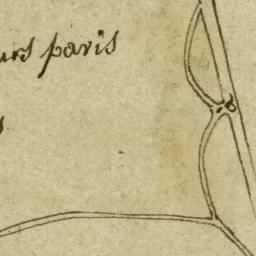 urs paris
s